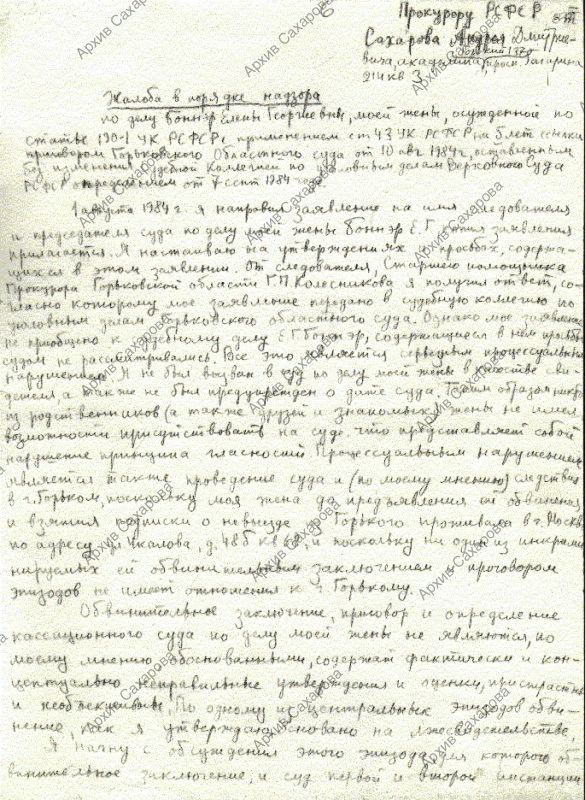 Прокурору РСФСР
Сахарова Андрея Дмитрие-
вича, академика, просп. Гагарина
214 кв 3
Жалоба в порядке надзора
по делу Боннэр Елены Георгиевны, моей жены, осужденной по
статье 190-1 УК РСФСР с применением ст 43 УК РСФСР на 5 лет ссылки
приговором Горьковского Областного суда от 10 авг 1984 г, оставленным
без изменения Судебной Коллегией по уголовным делам Верховного Суда
РСФСР определением от 7 сент 1984 года
1 августа 1984 г. я направил заявление на имя следователя
и председателя суда по делу моей жены Боннэр Е.Г., копия заявления
прилагается. Я настаиваю на утверждениях и просьбах, содержа-
щихся в этом заявлении. От следователя, Старшего помощника
Прокурора Горьковской области Г.П. Колесникова я получил ответ, со-
гласно которому мое заявление передано в судебную коллегию по
уголовным делам Горьковского областного суда. Однако мое заявление
не приобщено к судебному делу Е.Г. Боннэр, содержащиеся в нем просьбы
судом не рассматривались. Все это является серьезным процессуальным
нарушением. Я не был вызван в суд по делу моей жены в качестве сви-
детеля, а также не был предупрежден о дате суда. Таким образом никто
из родственников (а также друзей и знакомых) жены не имел
возможности присутствовать на суде, что представляет собой
нарушение принципа гласности. Процессуальным нарушением
является также проведение суда и (по моему мнению) следствия
в г. Горьком, поскольку моя жена до предъявления ей обвинения
и взятия подписки о невыезде из Горького проживала в г. Москве
по адресу ул Чкалова, д. 48б кв 68, и поскольку ни один из инкрими-
нируемых ей обвинительном заключением и приговором
эпизодов не имеет отношения к г. Горькому.
Обвинительное заключение, приговор и определение
кассационного суда по делу моей жены не являются, по
моему мнению, обоснованными, содержат фактически и кон-
цептуально неправильные утверждения и оценки, пристрастны
и необъективны. По одному из центральных эпизодов обви-
нение, как я утверждаю, основано на лжесвидетельстве.
Я начну с обсуждения этого эпизода, для которого об-
винительное заключение, и суд первой и второй инстанции
Архив Сахарова
Архив Сахарова
Архив Сахарова
Архив Сахарова
Архив Сахарова
Архив Сахарова
Архив Сахарова
Архив Сахарова
Архив Сахарова
Архив Сахарова
Архив Сахарова
Архив Сахарова